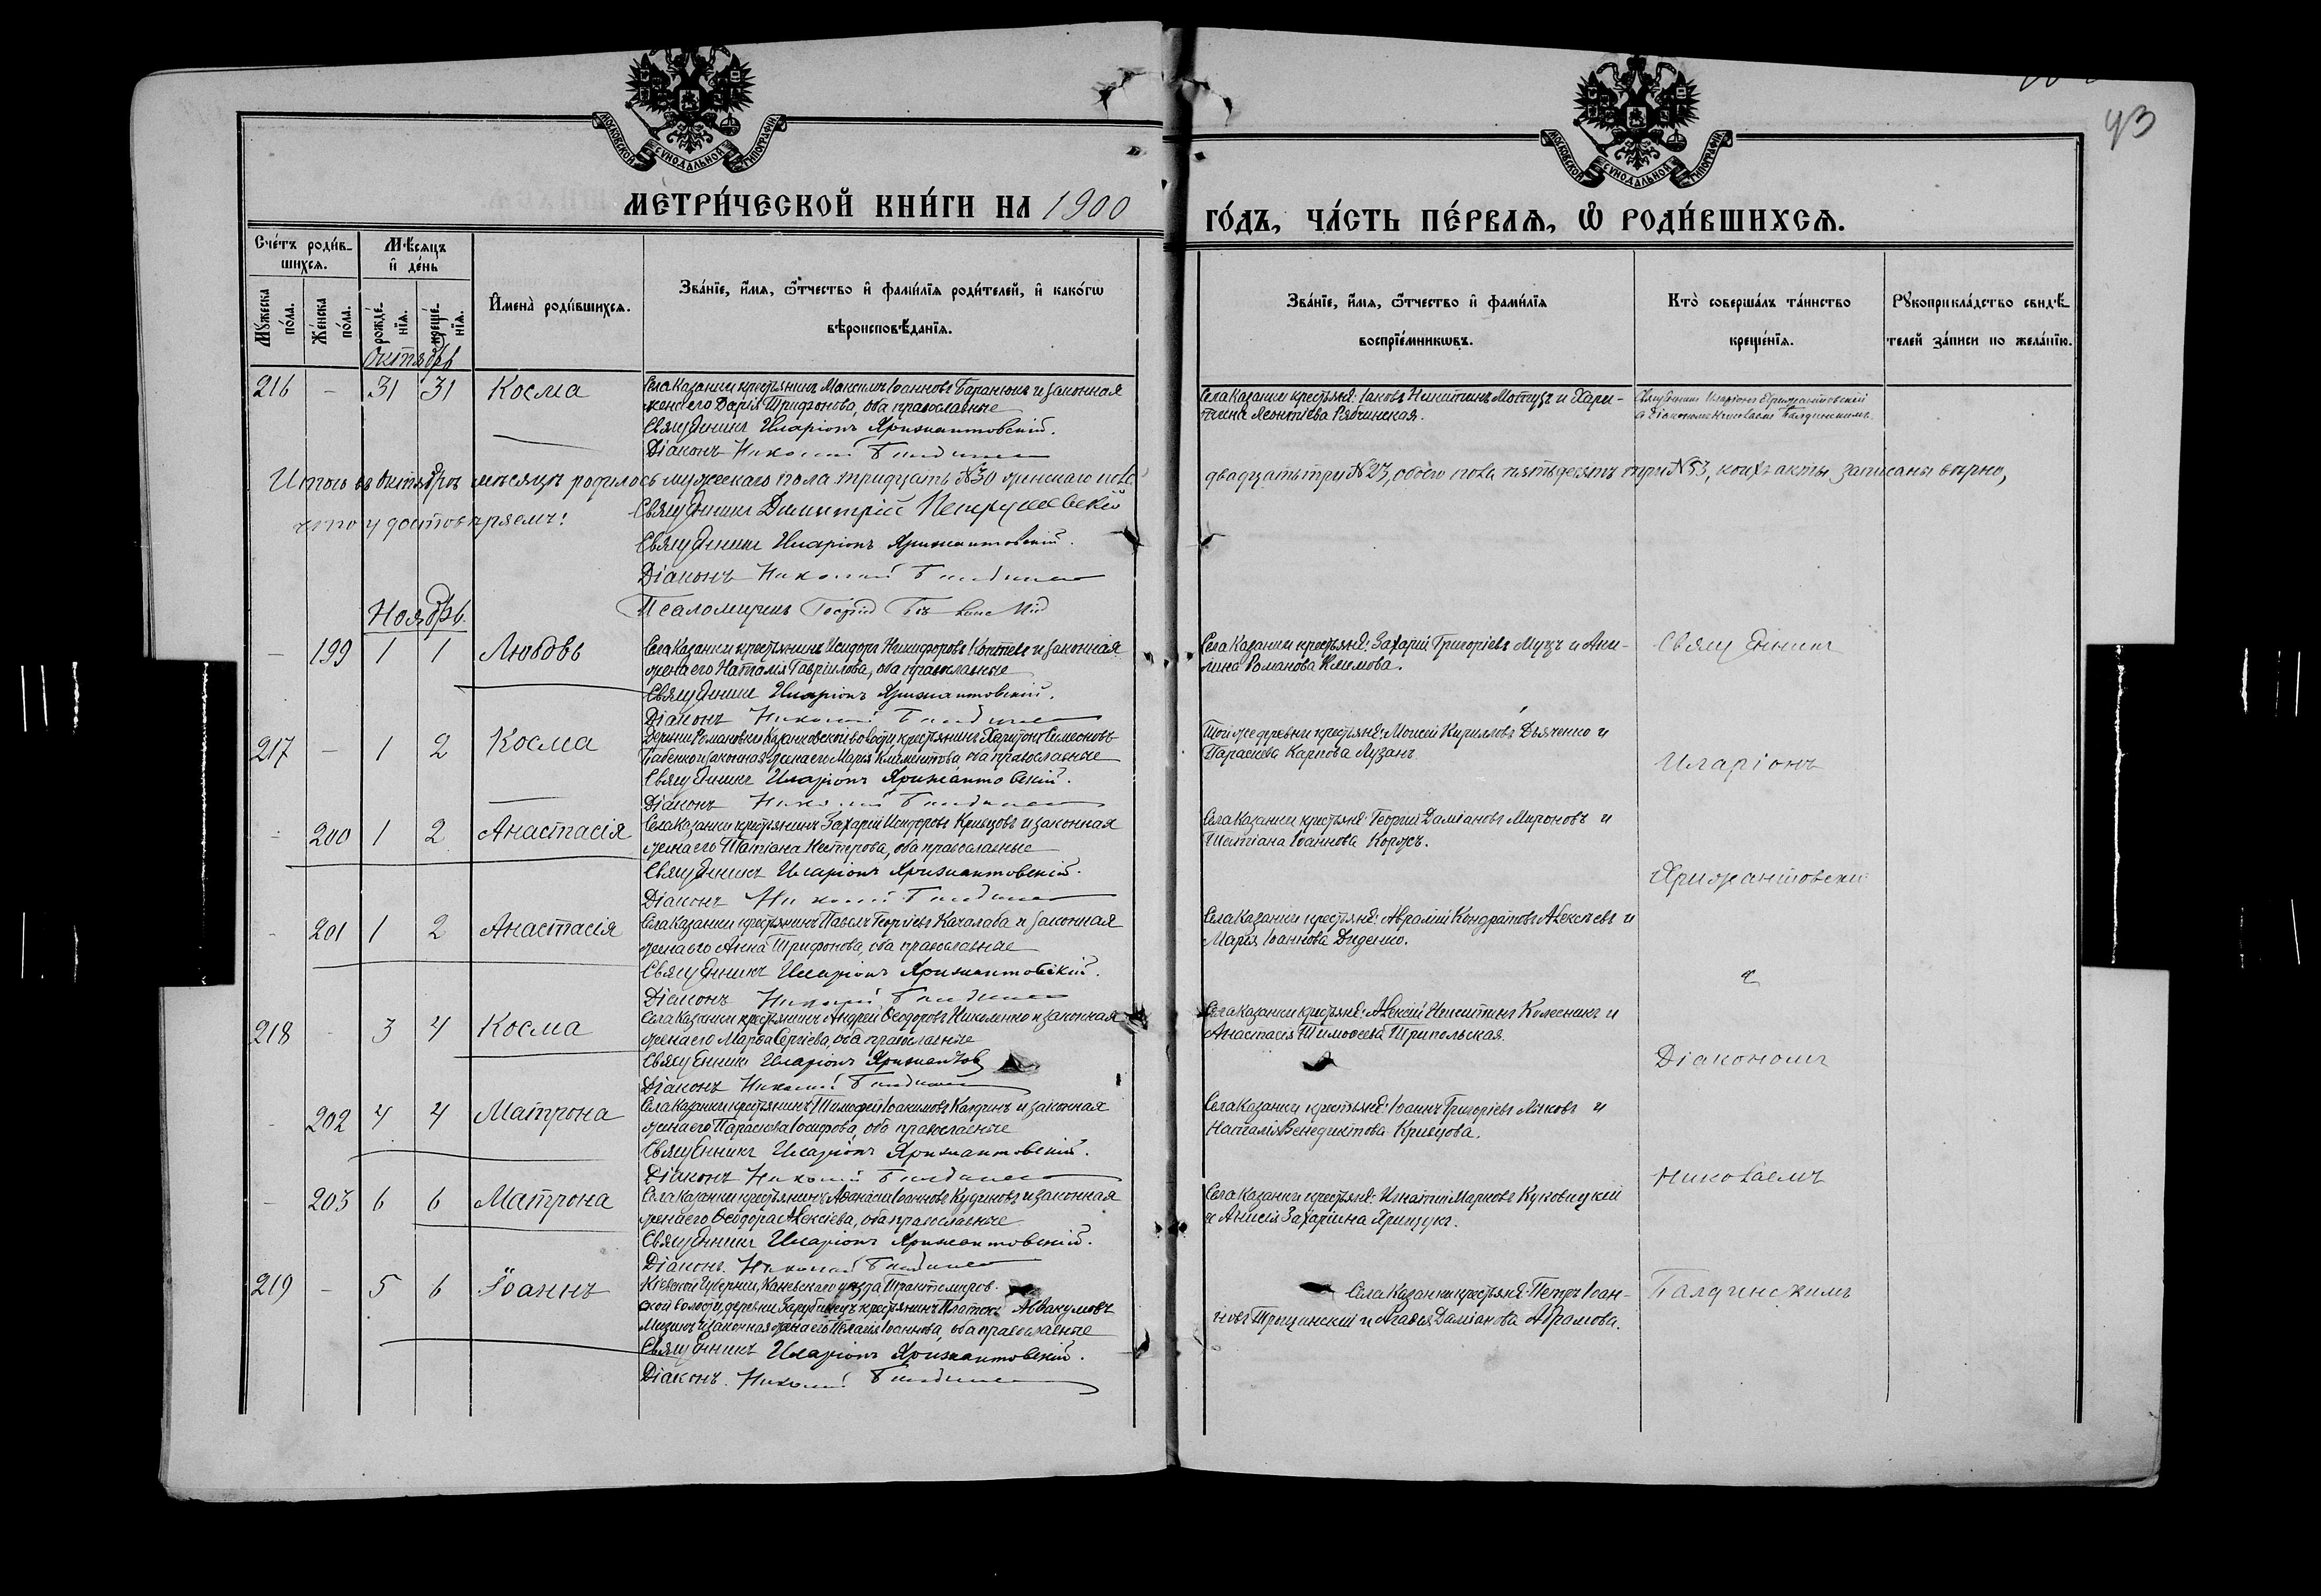 МОСКОВСКОЙ СѴНОДАЛЬНОЙ ТИПОГРАФІИ
МОСКОВСКОЙ СѴНОДАЛЬНОЙ ТИПОГРАФІИ
43
МЕТРИ́ЧЕСКОЙ КНИ́ГИ НА 1900
ГО́ДЪ, ЧА́СТЬ ПЕ́РВАѦ, Ѡ҆ РОДИ́ВШИХСѦ.
Сче́тъ роди́в-
шихсѧ.
Мѣ́сѧцъ
и҆ де́нь
Мꙋ́жеска
по́ла.
Же́нска
по́ла.
рожде́-
нїѧ.
креще́-
нїѧ.
И҆мена̀ роди́вшихсѧ.
Зва́нїе, и҆́мѧ, ѻ҆́тчество и҆ фами́лїѧ роди́телей, и҆ како́гѡ
вѣроисповѣ́данїѧ.
Зва́нїе, и҆́мѧ, ѻ҆́тчество и҆ фами́лїѧ
воспрїе́мникѡвъ.
Кто̀ соверша́лъ та́инство
креще́нїѧ.
Рꙋкоприкла́дство свидѣ́-
телей за́писи по жела́нїю.
Октябрь
216 - 31 31 Косма
Села Казанки крестьянинъ Максимъ Іоанновъ Баранюкъ и законная
жена его Дарія Трифонова, оба православные
Священникъ Иларіонъ Хрижантовскій.
Діаконъ Николай
Села Казанки крестьяне: Іаковъ Никитинъ Мотузъ и Хари-
тина Леонтіева Рябчинская.
Священникъ Иларіонъ Хрижантовскій
съ Діакономъ Николаемъ Балдинскимъ
Итого въ Октябрѣ мѣсяцѣ родилось мужескаго пола тридцать №30 женскаго пола
двадцать три №23, обоего пола пятьдесятъ три №53, коихъ акты записаны вѣрно,
что и удостовѣряемъ:
Священникъ Димитрій
Священникъ Иларіонъ Хрижантовскій.
Діаконъ Николай
Псаломщикъ
Ноябрь.
- 199 1 1 Любовь
Села Казанки крестьянинъ Исидоръ Никифоровъ Коптевъ и законная
жена его Наталія Гавриилова, оба православные
Священникъ Иларіонъ Хрижантовскій.
Діаконъ Николай
Села Казанки крестьяне: Захарій Григоріевъ Муцъ и Аки-
лина Романова Климова.
Священникъ
217 - 1 2 Косма
Деревни Романовки Казанковской волости крестьянинъ Харитонъ Симеоновъ
Бабенко и законная жена его Марія Климентова, оба православные
Священникъ Иларіонъ Хрижантовскій.
Діаконъ Николай
Той же деревни крестьяне: Моисей Кирилловъ Дьяченко и
Параскева Карпова Лузанъ.
Иларіонъ
- 200 1 2 Анастасія
Села Казанки крестьянинъ Захарій Исидоровъ Кривцовъ и законная
жена его Татіана Нестерова, оба православные
Священникъ Иларіонъ Хрижантовскій.
Діаконъ Николай
Села Казанки крестьяне: Георгій Даміановъ Мироновъ и
Татіана Іоаннова Коржъ.
Хрижантовскій
- 201 1 2 Анастасія
Села Казанки крестьянинъ Павелъ Георгіевъ Качалаба и законная
жена его Анна Трифонова, оба православные
Священникъ Иларіонъ Хрижантовскій.
Діаконъ Николай
Села Казанки крестьяне: Авраамій Кондратовъ Алексѣевъ и
Марія Іоаннова Диденко.
218 - 3 4 Косма
Села Казанки крестьянинъ Андрей Ѳеодоровъ Николенко и законная
жена его Марѳа Сергіева, оба православные
Священникъ Иларіонъ
Діаконъ Николай
Села Казанки крестьяне: Алексій Никитинъ Колесникъ и
Анастасія Тимоѳеева Трипольская.
Діакономъ
- 202 4 4 Матрона
Села Казанки крестьянинъ Тимоѳей Іоакимовъ Калдинъ и законная
жена его Параскева Іосифова, оба православные
Священникъ Иларіонъ Хрижантовскій.
Діаконъ Николай
Села Казанки крестьяне: Іоаннъ Григоріевъ Лыковъ и
Наталія Венедиктова Кривцова.
Николаемъ
- 203 6 6 Матрона
Села Казанки крестьянинъ Аѳанасій Іоанновъ Кудиновъ и законная
жена его Ѳеодора Алексіева, оба православные
Священникъ Иларіонъ Хрижантовскій.
Діаконъ Николай
Села Казанки крестьяне: Игнатій Марковъ Куковицкій
и Анисія Захаріина Хрищукъ.
219 - 5 6 Іоаннъ
Кіевской Губерніи, Каневскаго уѣзда Трактемиров-
ской волости, деревни Зарубинецъ крестьянинъ Платонъ Аввакумовъ
и законная жена его Пелагія Іоаннова, оба православные
Священникъ Иларіонъ Хрижантовскій.
Діаконъ Николай
Села Казанки крестьяне: Петръ Іоан-
новъ Трещинскій и Агаѳія Даміанова Абрамова.
Балдинскимъ